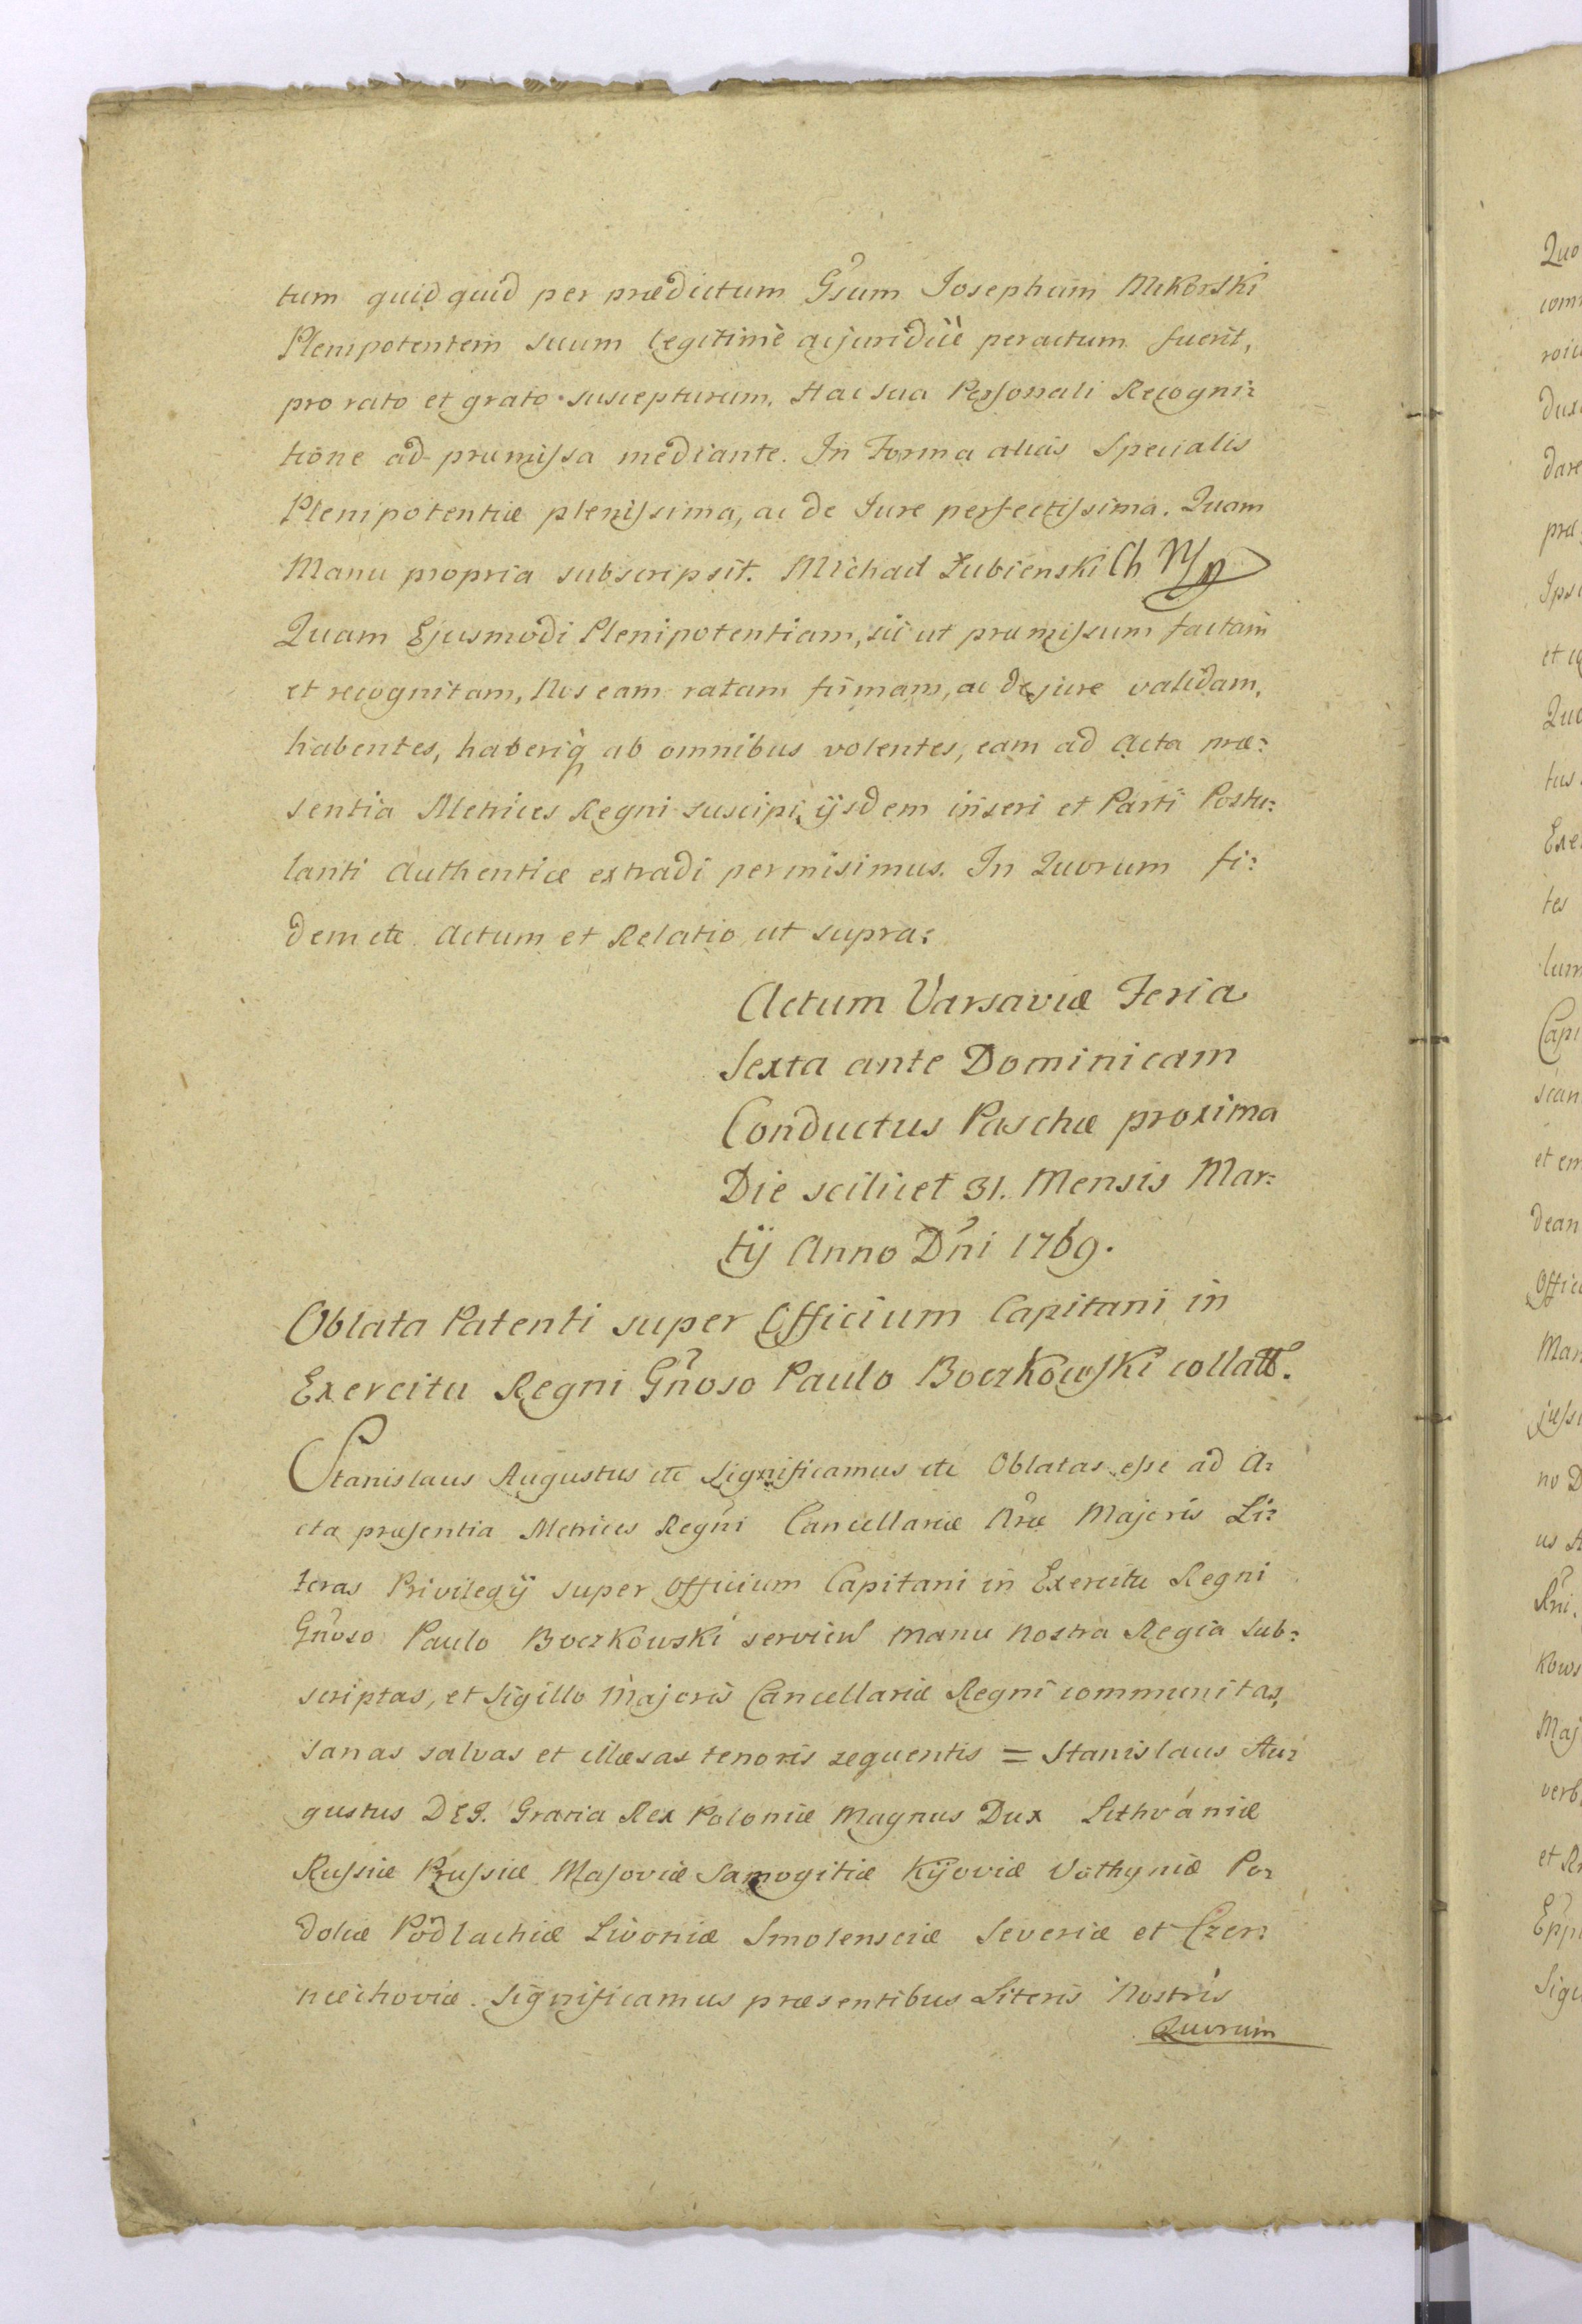 tum quidquid per prædictum Gsum Josephum Mikorski
Plenipotentem suum legitimè ac juridicè peractum fuerit,
pro rato et grato suscepturum. Hac sua Personali Recogni:
tione ad præmissa mediante. In Forma alias Specialis
Plenipotentiæ plenissima, ac de Jure perfectissima. Quam
Manu propria subscripsit. Michael Łubienski Ch Mp
Quam Ejusmodi Plenipotentiam, sic ut præmissum factam
et recognitam, Nos eam ratam firmam, ac de jure validam,
habentes, haberiq ab omnibus volentes, eam ad Acta præ:
sentia Metrices Regni suscipi, ijsdem inseri et Parti Postu:
lanti Authenticè extradi permisimus. In Quorum fi:
dem etc Actum et Relatio ut supra:
Actum Varsaviæ Feria
Sexta ante Dominicam
Conductus Paschæ proxima
Die scilicet 31. Mensis Mar:
tÿ Anno Dni 1769.
Oblata Patenti super Officium Capitani in
Exercitu Regni Gnoso Paulo Boczkowski collatt.
Stanislaus Augustus etc Significamus etc Oblatas esse ad A:
cta præsentia Metrices Regni Cancellariæ Nræ Majoris Li:
teras Privilegÿ super Officium Capitani in Exercitu Regni
Gnoso Paulo Boczkowski serviens manu Nostra Regia sub:
scriptas, et Sigillo Majoris Cancellariæ Regni communitas,
sanas salvas et illæsas tenoris sequentis = Stanislaus Au:
gustus DEI. Gratia Rex Poloniæ Magnus Dux Lithvaniæ
Russiæ Prussiæ Masoviæ Samogitiæ Kijoviæ Volhyniæ Po:
doliæ Podlachiæ Livoniæ Smolensciæ Severiæ et Czer:
niechoviæ. Significamus præsentibus Literis Nostris
Quorum